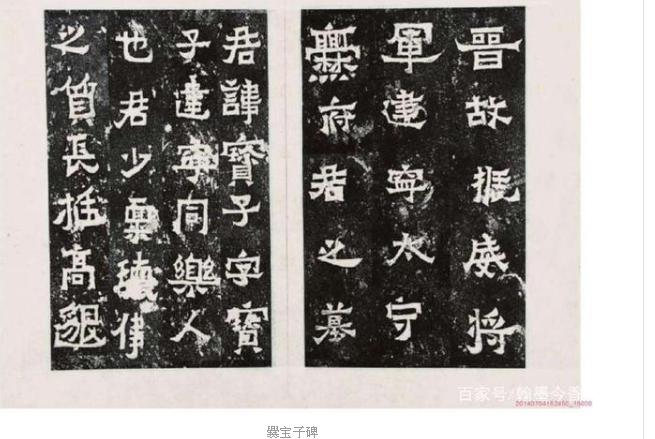 晉故振威将
軍建寧太守
爨府君之墓
君諱寶子字寶
子建寧同樂人
也君少稟瓌偉
之質長挺高邈
百家号/翰墨今香
爨宝子碑